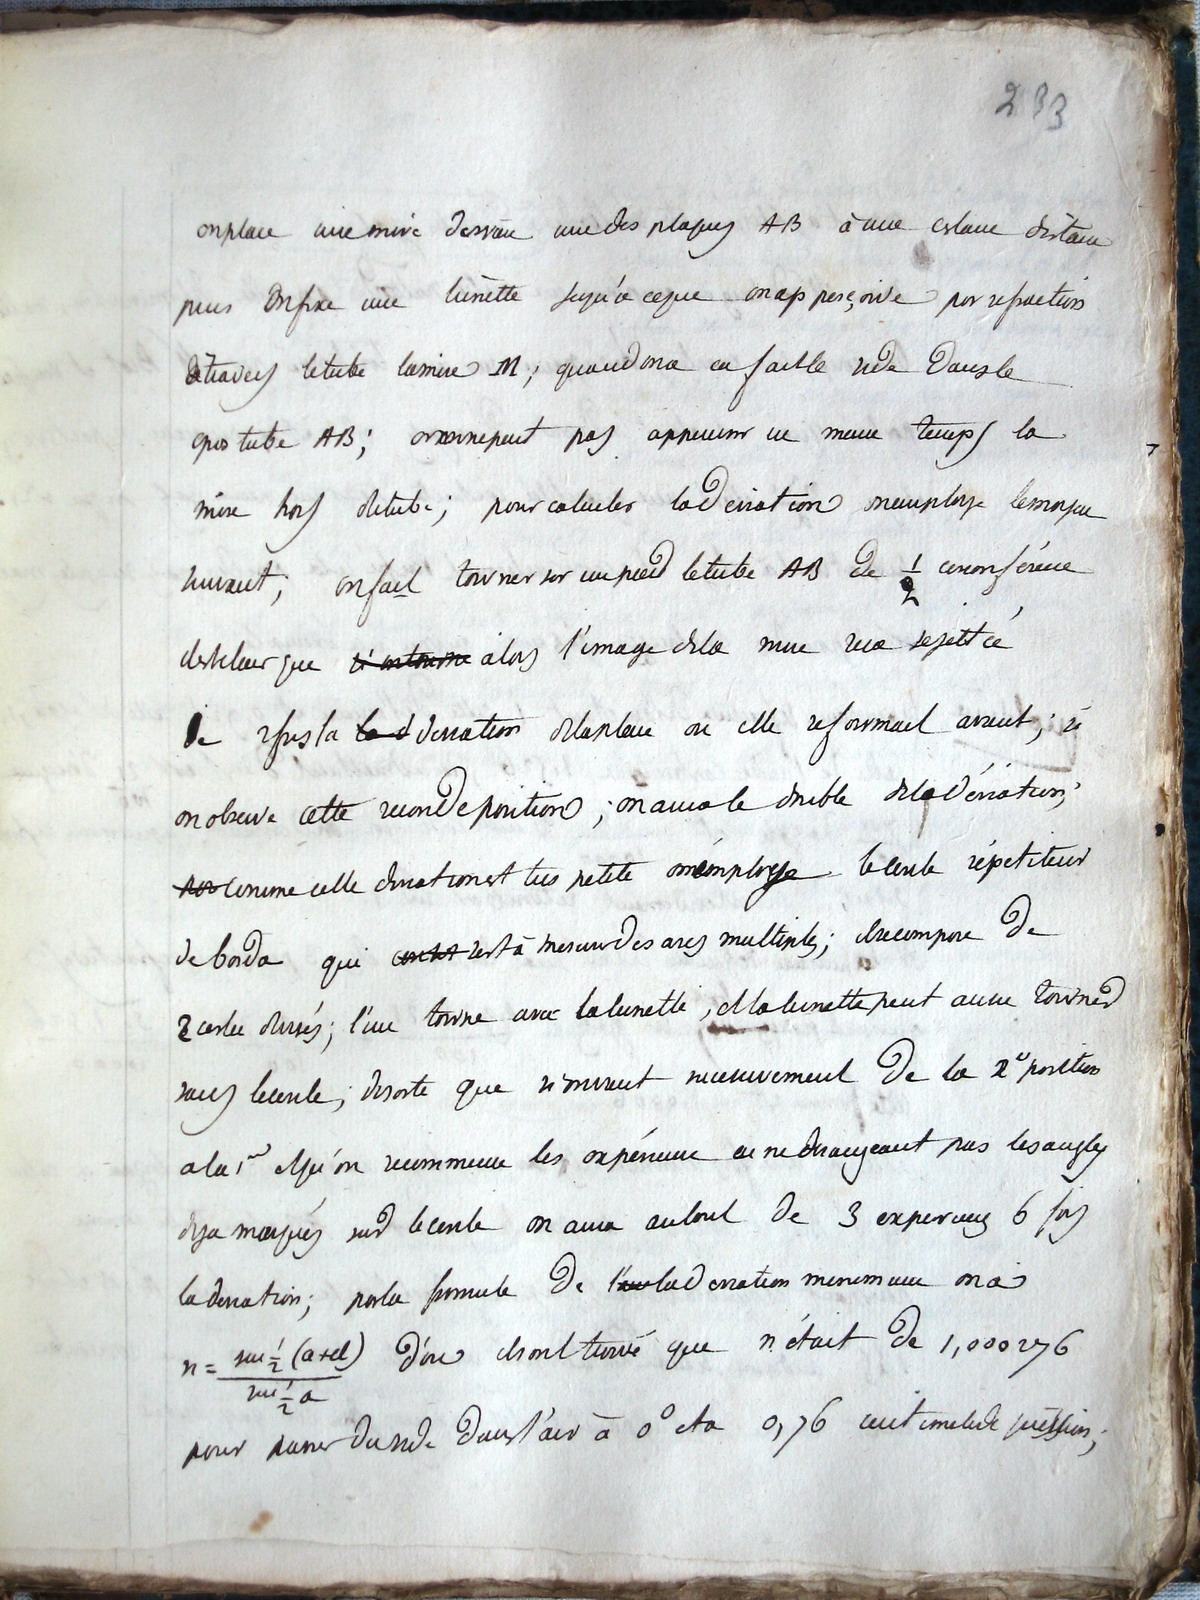 233
on place une mire devant une des plaques AB à une certaine distance
puis on fixe une lunette jusqu'à ce que on apperçoive par refraction
à travers le tube la mire M; quand on a eu fait le vide dans le
gros tube AB; on ne peut pas appercevoir en meme temps la
mire hors du tube; pour calculer la deviation on employe le moyen
suivant; on fait tourner sur un pied le tube AB de 1/2 circonférence
il est clair que alors l'image de la mire sera rejettée
de 2 fois la deviation de la place ou elle se formait avant; si
on observe cette seconde position; on aura le double de la déviation;
comme cette deviation est tres petite on employe le cercle répetiteur
de borda qui sert à mesurer des arcs multiples; il se compose de
2 cercles divisés; l'un tourne avec la lunette, et la lunette peut aussi tourner
sans le cercle; de sorte que si on vient successivement de la 2e position
a la 1re et qu'on recommence les expérience en ne derangeant pas les angles
deja marqués sur le cercle on aura au bout de 3 experiences 6 fois
la deviation; par la formule de la deviation minimum on a
n = sin 1/2 (a+d) / sin 1/2 a d'ou ils ont trouvé que n était de 1,000276
pour passer du vide dans l'air à 0° et a 0,76 centimetre de pression;